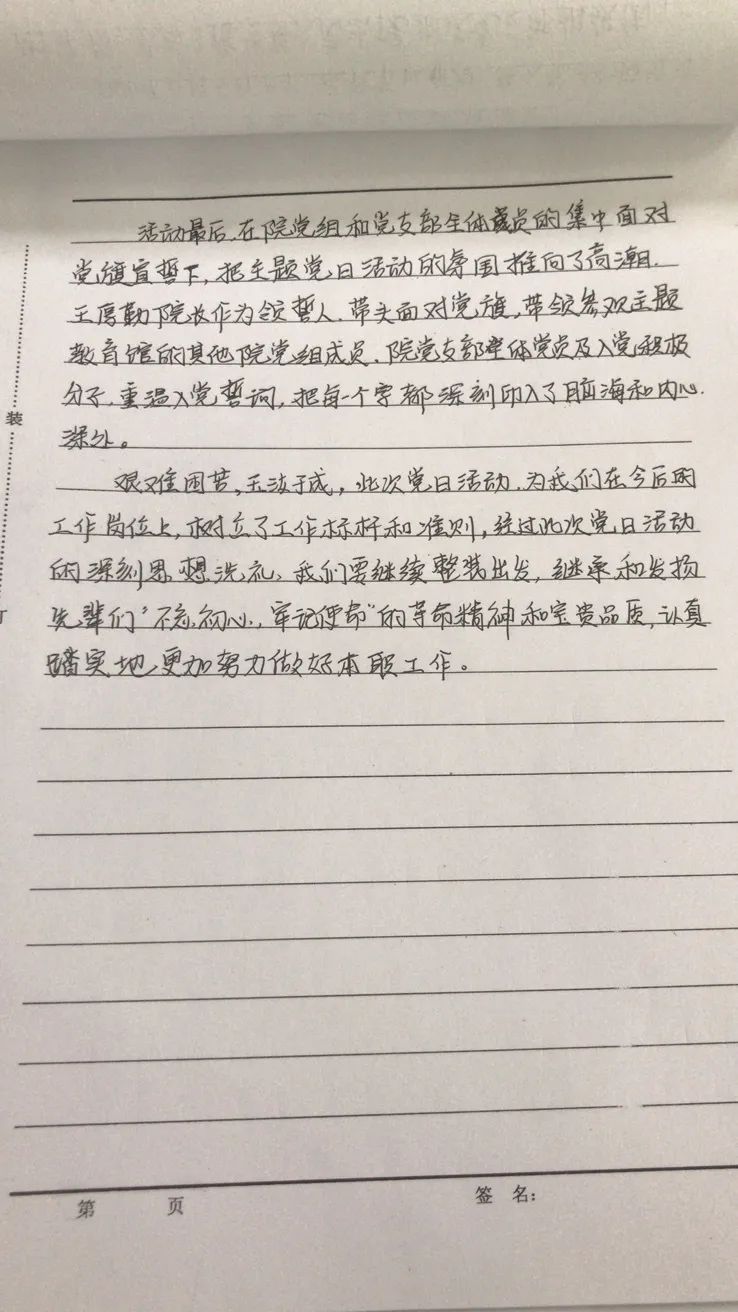 活动最后,在院党组和党支部全体党员的集中面对
党旗宣誓下,把主题党日活动的氛围推向了高潮.
王厚勤院长作为领誓人.带头面对党旗,带领参观主题
教育馆的其他院党组成员、院党支部全体党员及入党积极
分子,重温入党誓词,把每一个字都深刻印入了脑海和内心
深处。
艰难困苦,玉汝于成,此次党日活动.为我们在今后的
工作岗位上,树立了工作标杆和准则,经过此次党日活动
的深刻思想洗礼、我们要继续整装出发,继承和发扬
先辈们"不忘初心,牢记使命"的革命精神和宝贵品质,认真
踏实地,更加努力做好本职工作。
装
第 页
签 名: